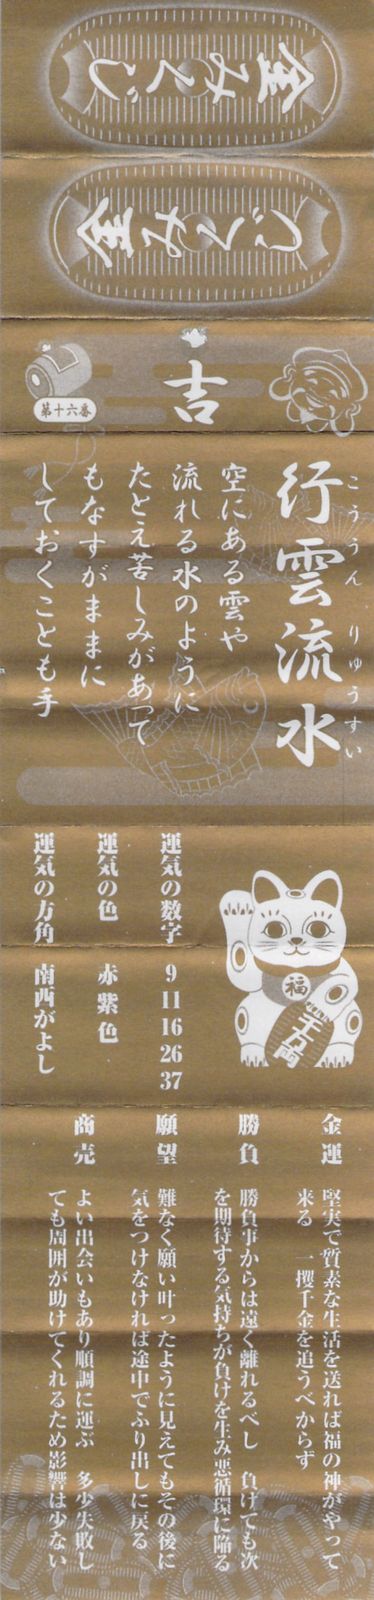 金みくじ
金みくじ
第十六番
吉
こううん りゅうすい
行雲流水
空にある雲や
流れる水のように
たとえ苦しみがあって
もなすがままに
しておくことも手
福
千万両
運気の数字 9 11 16 26 37
運気の色 赤紫色
運気の方角 南西がよし
金運 堅実で質素な生活を送れば福の神がやって
来る 一攫千金を追うべからず
勝負 勝負事からは遠く離れるべし 負けても次
を期待する気持ちが負けを生み悪循環に陥る
願望 難なく願い叶ったように見えてもその後に
気をつけなければ途中でふり出しに戻る
商売 よい出会いもあり順調に運ぶ 多少失敗し
ても周囲が助けてくれるため影響は少ない